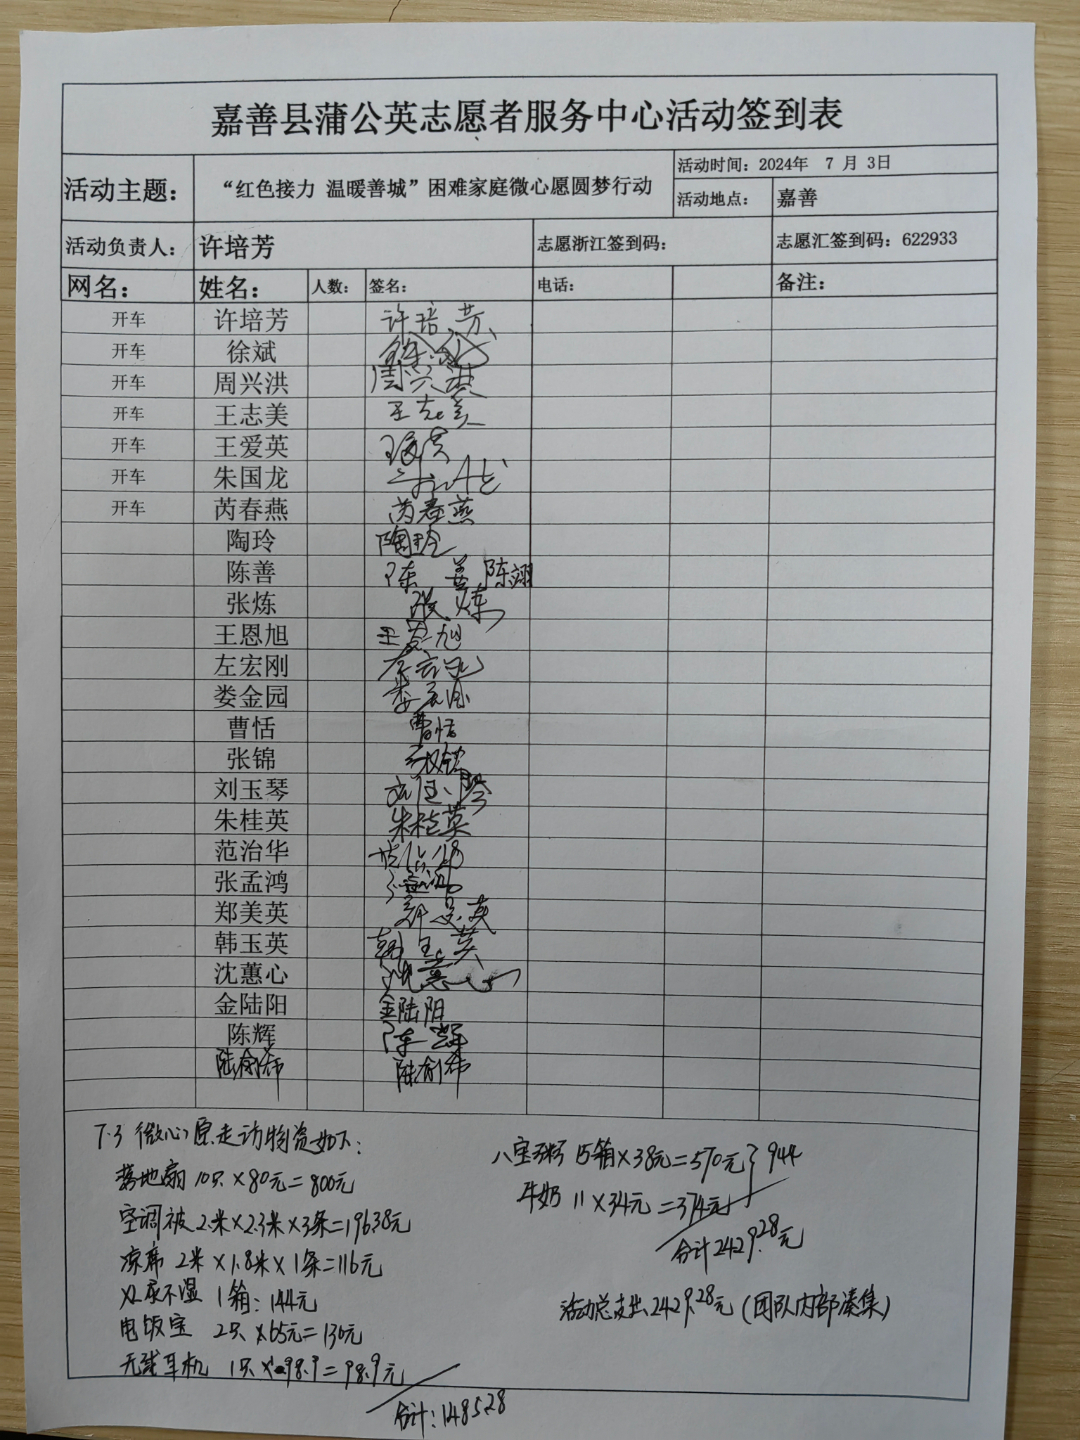 嘉善县蒲公英志愿者服务中心活动签到表
活动主题： “红色接力 温暖善城”困难家庭微心愿圆梦行动 活动时间：2024年 7 月 3日
活动地点： 嘉善
活动负责人： 许培芳 志愿浙江签到码： 志愿汇签到码：622933
网名： 姓名： 人数： 签名： 电话： 备注：
开车 许培芳 许培芳
开车 徐斌 徐斌
开车 周兴洪 周兴洪
开车 王志美 王志美
开车 王爱英
开车 朱国龙
开车 芮春燕 芮春燕
陶玲 陶玲
陈善 陈善 陈翊
张炼 张炼
王恩旭 王恩旭
左宏刚 左宏刚
娄金园
曹恬 曹恬
张锦 张锦
刘玉琴
朱桂英 朱桂英
范治华
张孟鸿
郑美英 郑美英
韩玉英 韩玉英
沈蕙心 沈蕙心
金陆阳 金陆阳
陈辉 陈辉
陆俞希 陆俞希
7.3 微心愿走访物资如下：
落地扇 10只×80元=800元
空调被 2米×2.3米×3条=196.38元
凉席 2米×1.8米×1条=116元
尿不湿 1箱：144元
电饭宝 2只×65元=130元
无线耳机 1只×98.9=98.9元
合计：1485.28
八宝粥 15箱×38元=570元 944
牛奶 11×34元=374元
合计2429.28元
活动总支出2429.28元（团队内部凑集）